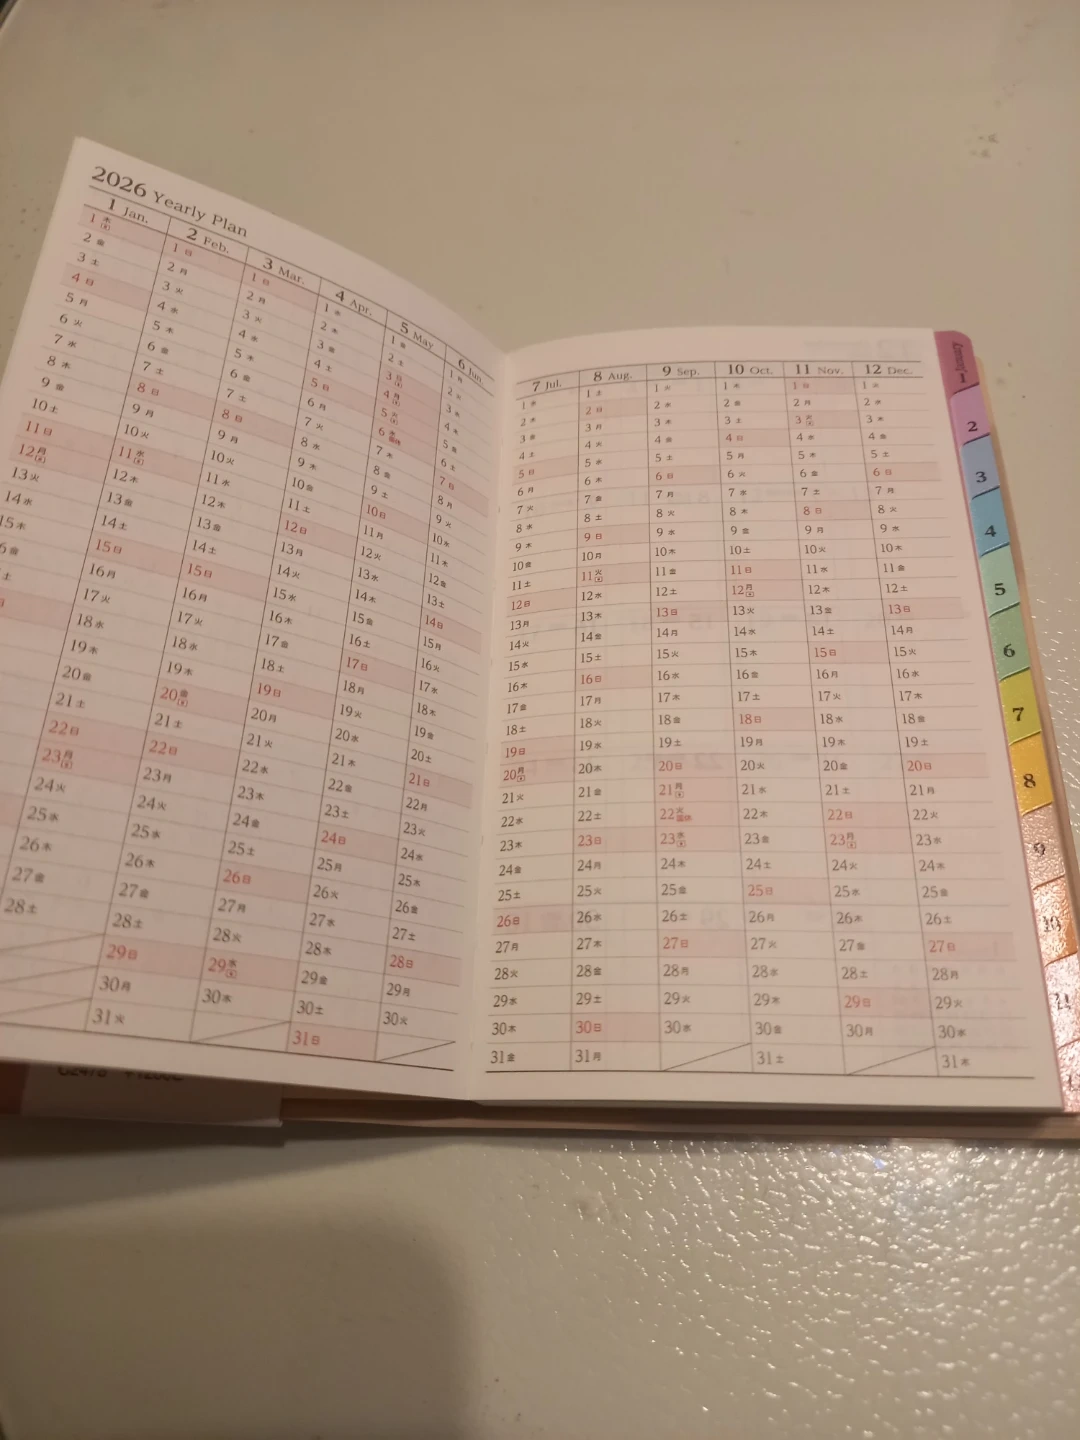 2026 Yearly Plan
1 Jan. 2 Feb. 3 Mar. 4 Apr. 5 May 6 Jun.
1木 1日 1日 1水 1金 1月
2金 2月 2月 2木 2土 2火
3土 3火 3火 3金 3日 3水
4日 4水 4水 4土 4月 4木
5月 5木 5木 5日 5火 5金
6火 6金 6金 6月 6水 6土
7水 7土 7土 7火 7木 7日
8木 8日 8日 8水 8金 8月
9金 9月 9月 9木 9土 9火
10土 10火 10火 10金 10日 10水
11日 11水 11水 11土 11月 11木
12月 12木 12木 12日 12火 12金
13火 13金 13金 13月 13水 13土
14水 14土 14土 14火 14木 14日
15木 15日 15日 15水 15金 15月
6金 16月 16月 16木 16土 16火
土 17火 17火 17金 17日 17水
日 18水 18水 18土 18月 18木
19木 19木 19日 19火 19金
20金 20金 20月 20水 20土
21土 21土 21火 21木 21日
22日 22日 22水 22金 22月
23月 23月 23木 23土 23火
24火 24火 24金 24日 24水
25水 25水 25土 25月 25木
26木 26木 26日 26火 26金
27金 27金 27月 27水 27土
28土 28土 28火 28木 28日
29日 29水 29金 29月
30月 30木 30土 30火
31火 31日
7 Jul. 8 Aug. 9 Sep. 10 Oct. 11 Nov. 12 Dec.
1水 1土 1火 1木 1日 1火
2木 2日 2水 2金 2月 2水
3金 3月 3木 3土 3火 3木
4土 4火 4金 4日 4水 4金
5日 5水 5土 5月 5木 5土
6月 6木 6日 6火 6金 6日
7火 7金 7月 7水 7土 7月
8水 8土 8火 8木 8日 8火
9木 9日 9水 9金 9月 9水
10金 10月 10木 10土 10火 10木
11土 11火 11金 11日 11水 11金
12日 12水 12土 12月 12木 12土
13月 13木 13日 13火 13金 13日
14火 14金 14月 14水 14土 14月
15水 15土 15火 15木 15日 15火
16木 16日 16水 16金 16月 16水
17金 17月 17木 17土 17火 17木
18土 18火 18金 18日 18水 18金
19日 19水 19土 19月 19木 19土
20月 20木 20日 20火 20金 20日
21火 21金 21月 21水 21土 21月
22水 22土 22火 22木 22日 22火
23木 23日 23水 23金 23月 23水
24金 24月 24木 24土 24火 24木
25土 25火 25金 25日 25水 25金
26日 26水 26土 26月 26木 26土
27月 27木 27日 27火 27金 27日
28火 28金 28月 28水 28土 28月
29水 29土 29火 29木 29日 29火
30木 30日 30水 30金 30月 30水
31金 31月 31土 31木
1 January
2
3
4
5
6
7
8
9
10
11